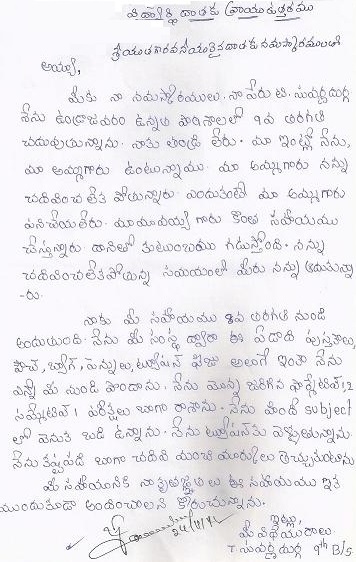 విద్యార్థి దాతకు వ్రాయు ఉత్తరము
శ్రీయుత గౌరవనీయులైన దాతకు నమస్కారములతో
అయ్యా,
మీకు నా నమస్కారములు. నా పేరు టి. సువర్ణదుర్గ
నేను ఉండ్రాజవరం ఉన్నత పాఠశాలలో 9వ తరగతి
చదువుతున్నాను. నాకు తండ్రి లేరు. మా ఇంట్లో నేను,
మా అమ్మగారు ఉంటున్నాము. మా అమ్మగారు నన్ను
చదివించలేక పోతున్నారు. ఎందుకంటే మా అమ్మగారు
పనిచేయలేరు. మా మావయ్య గారు కొంత సహాయము
చేస్తున్నారు. దానితో కుటుంబము గడుస్తోంది. నన్ను
చదివించలేకపోతున్న సమయంలో మీరు నన్ను ఆదుకున్నా
-రు.
నాకు మీ సహాయము 8వ తరగతి నుండి
అందుతుంది. నేను మీ సంస్థ ద్వారా ఈ ఏడాది పుస్తకాలు,
బ్యాగ్, పెన్నులు, ట్యూషన్ ఫీజు అలాగే ఇంకా నేను
ఎన్నో మీ నుండి పొందాను. నేను మొన్న జరిగిన ఫార్మేటివ్ 1,2
సమ్మేటివ్ 1 పరీక్షలు బాగా రాశాను. నేను హిందీ subject
లో వెనుకబడి ఉన్నాను. నేను ట్యూషన్‌కు వెళ్తున్నాను.
నేను కష్టపడి బాగా చదివి మంచి మార్కులు తెచ్చుకుంటాను
మీ సహాయానికి నా కృతజ్ఞతలు ఈ సహాయము ఇక
ముందుకూడా అందించాలని కోరుచున్నాను.
ఇట్లు,
మీ విధేయురాలు.
T. సువర్ణ దుర్గ 9th B/S.